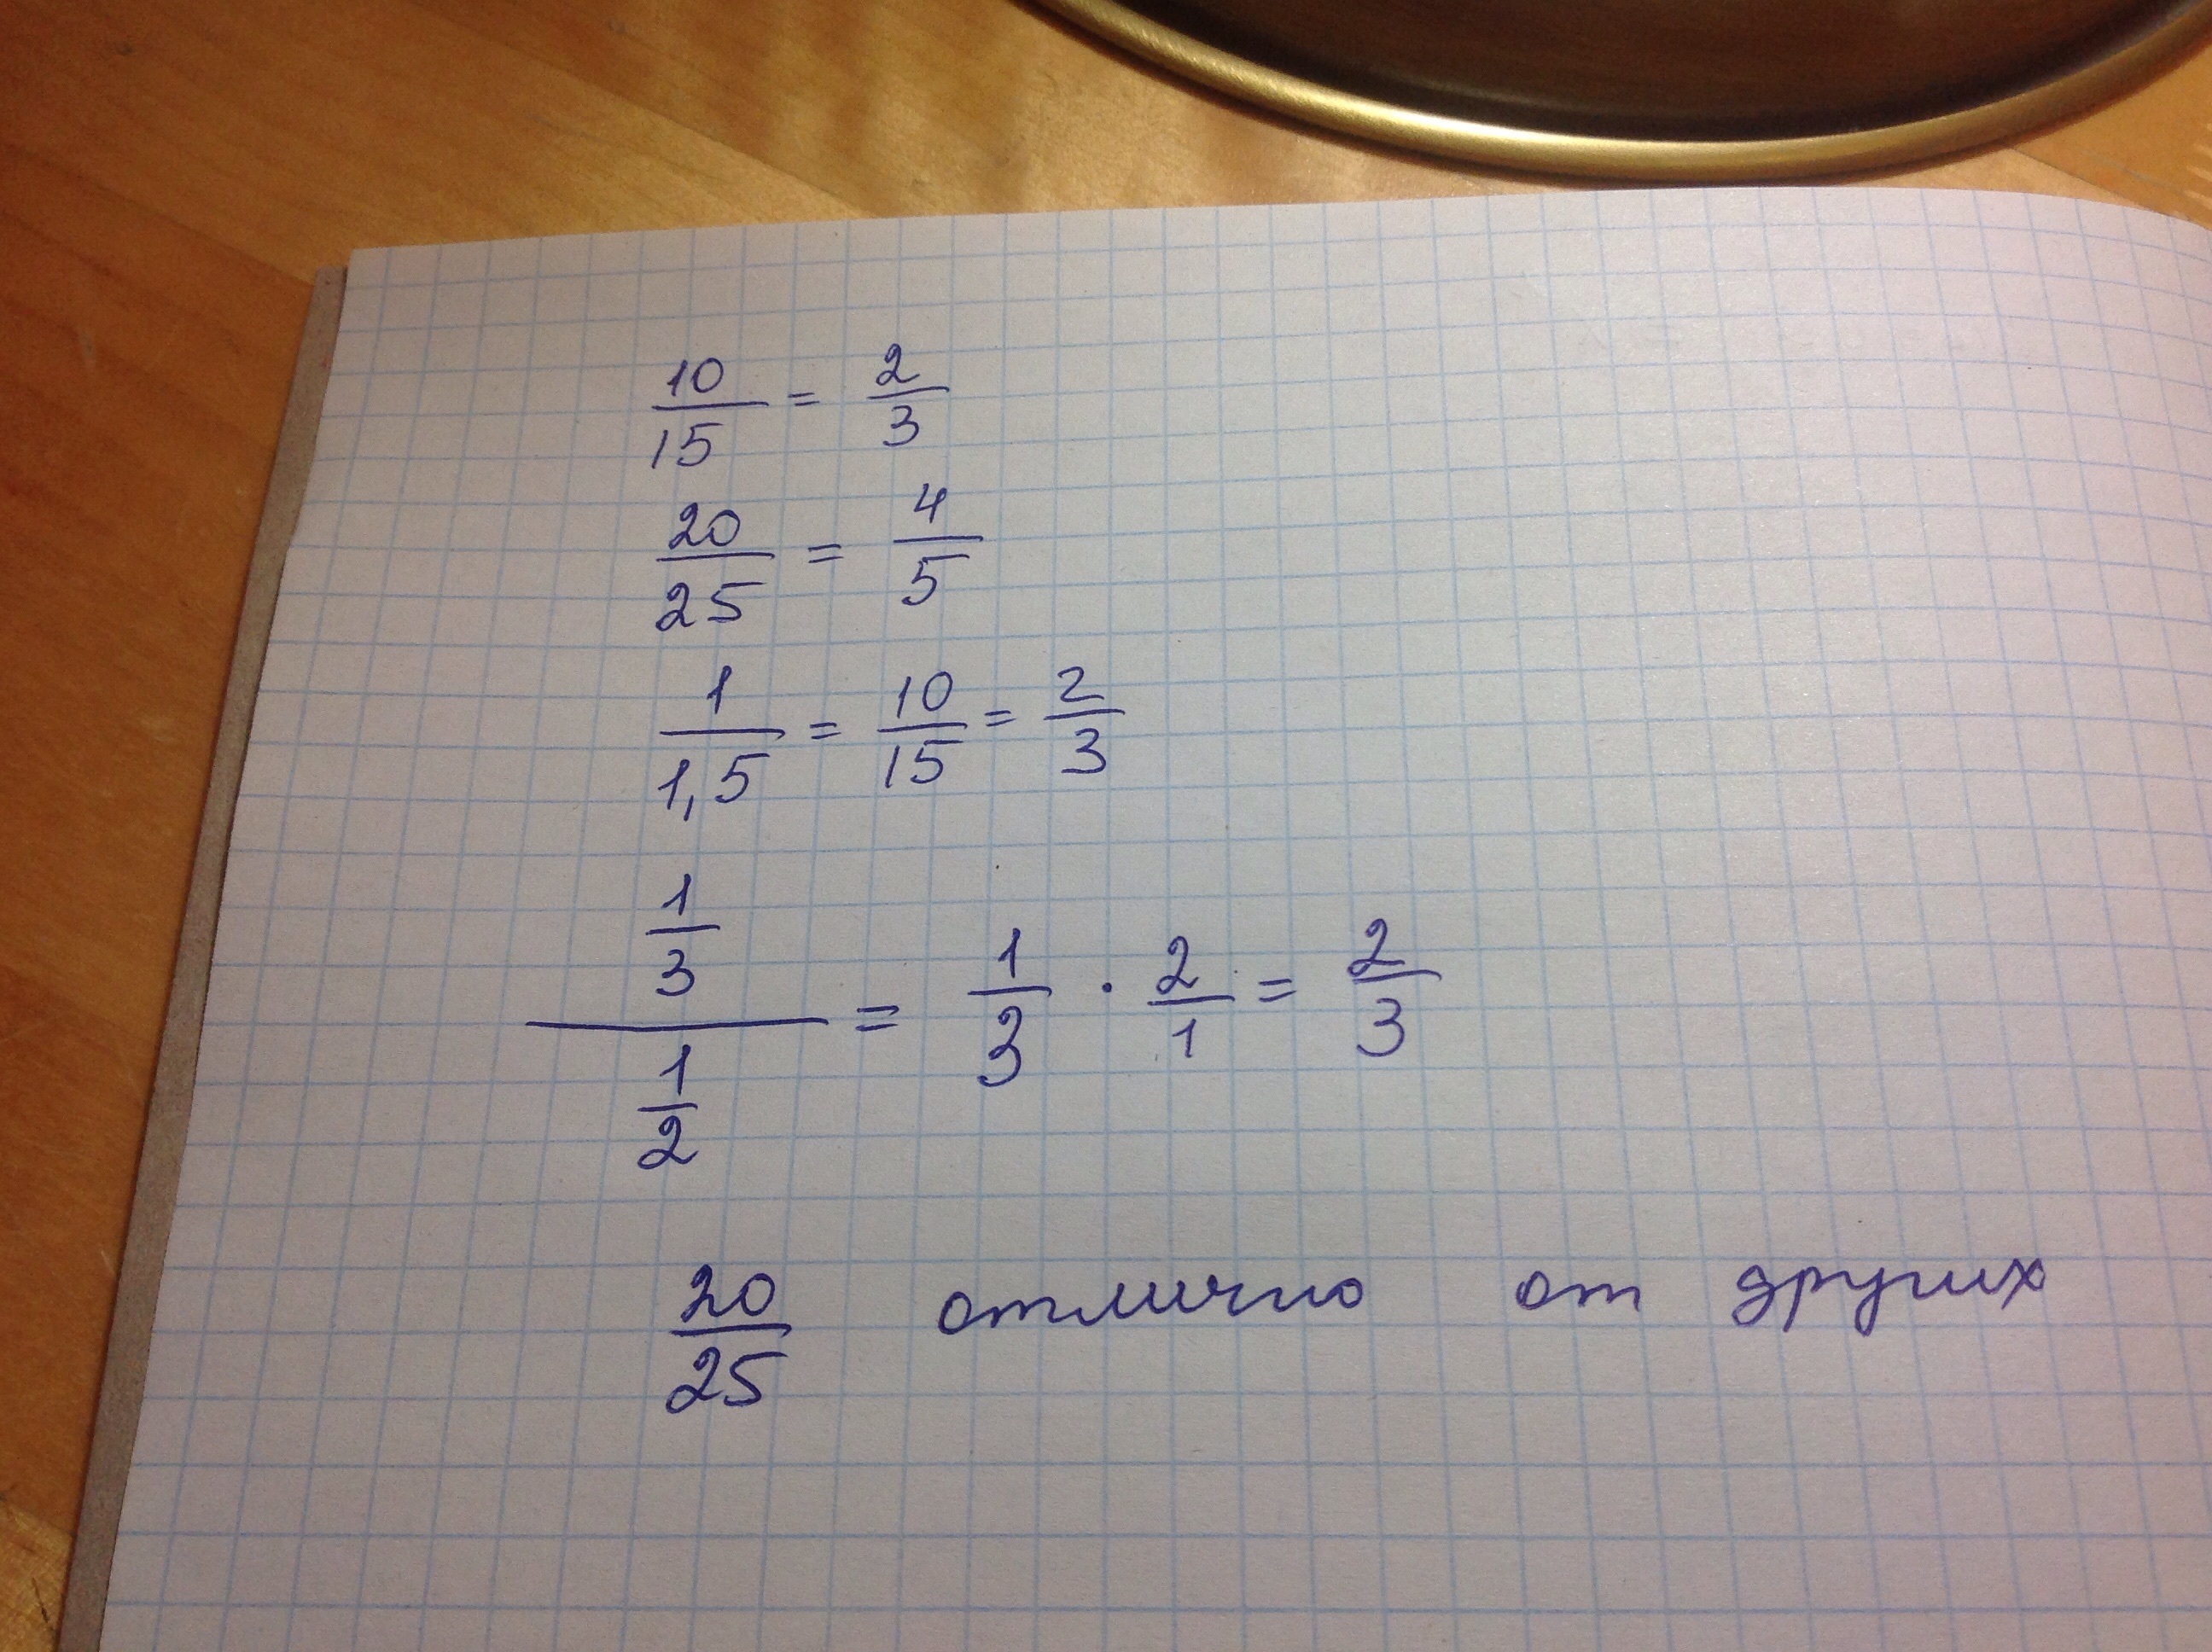 10/15 = 2/3
20/25 = 4/5
1/1,5 = 10/15 = 2/3
1/3 / 1/2 = 1/3 · 2/1 = 2/3
20/25 отлично от других